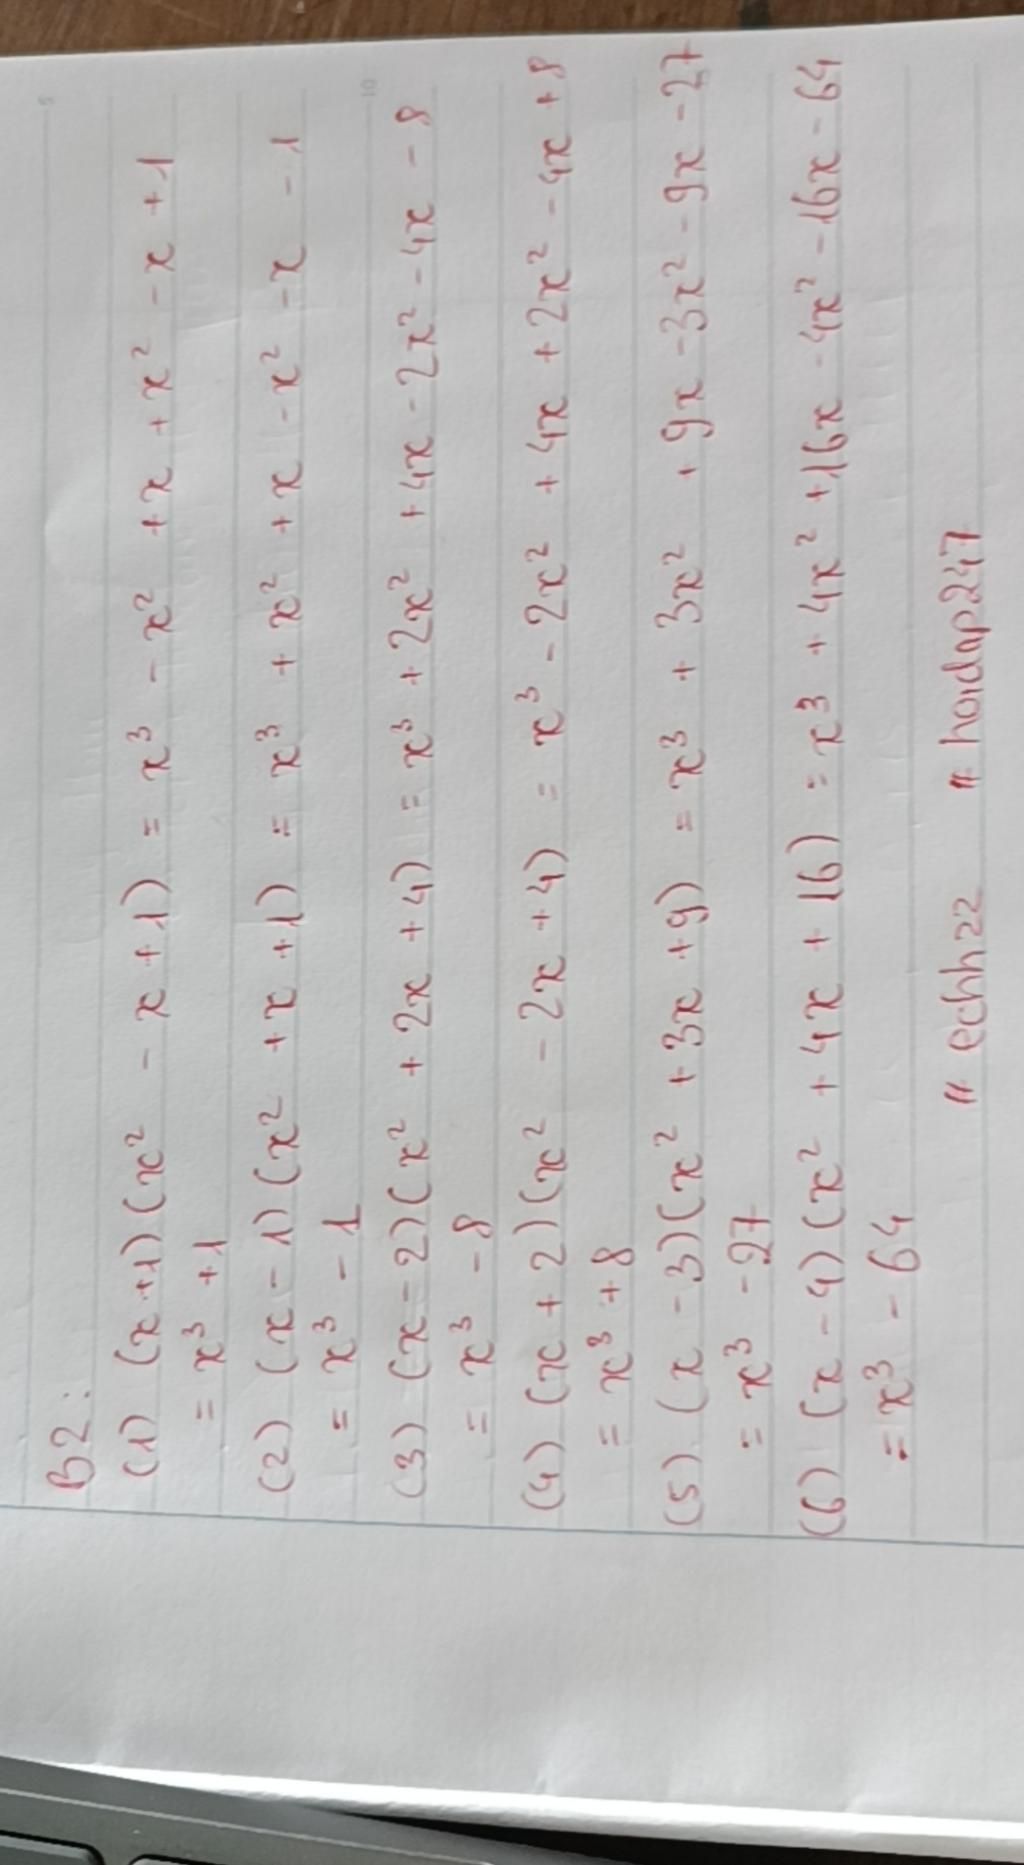 B2:
(1) (x+1)(x² - x +1) = x³ - x² + x + x² - x + 1
= x³ +1
(2) (x - 1)(x² + x +1) = x³ + x² + x - x² - x - 1
= x³ - 1
(3) (x - 2)(x² + 2x +4) = x³ + 2x² + 4x - 2x² - 4x - 8
= x³ - 8
(4) (x + 2)(x² - 2x +4) = x³ - 2x² + 4x + 2x² - 4x + 8
= x³ + 8
(5) (x - 3)(x² + 3x +9) = x³ + 3x² + 9x - 3x² - 9x - 27
= x³ - 27
(6) (x - 4)(x² + 4x + 16) = x³ + 4x² + 16x - 4x² - 16x - 64
= x³ - 64
" echh22 " hoidap247